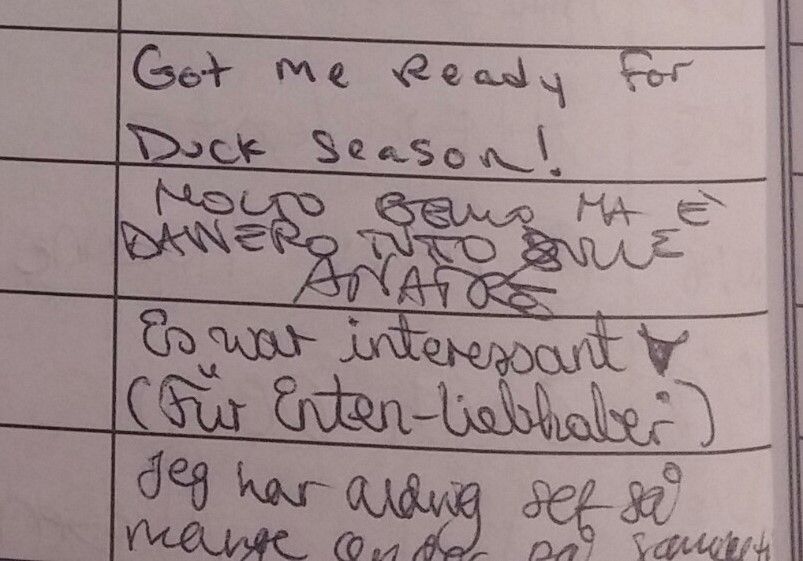 Got me Ready for
Duck Season!
MOLTO BELLO MA È
DAVVERO TUTO SULLE
ANATRE
Es war interessant
(Für Enten-liebhaber)
Jeg har aldrig set så
mange ænder på samme